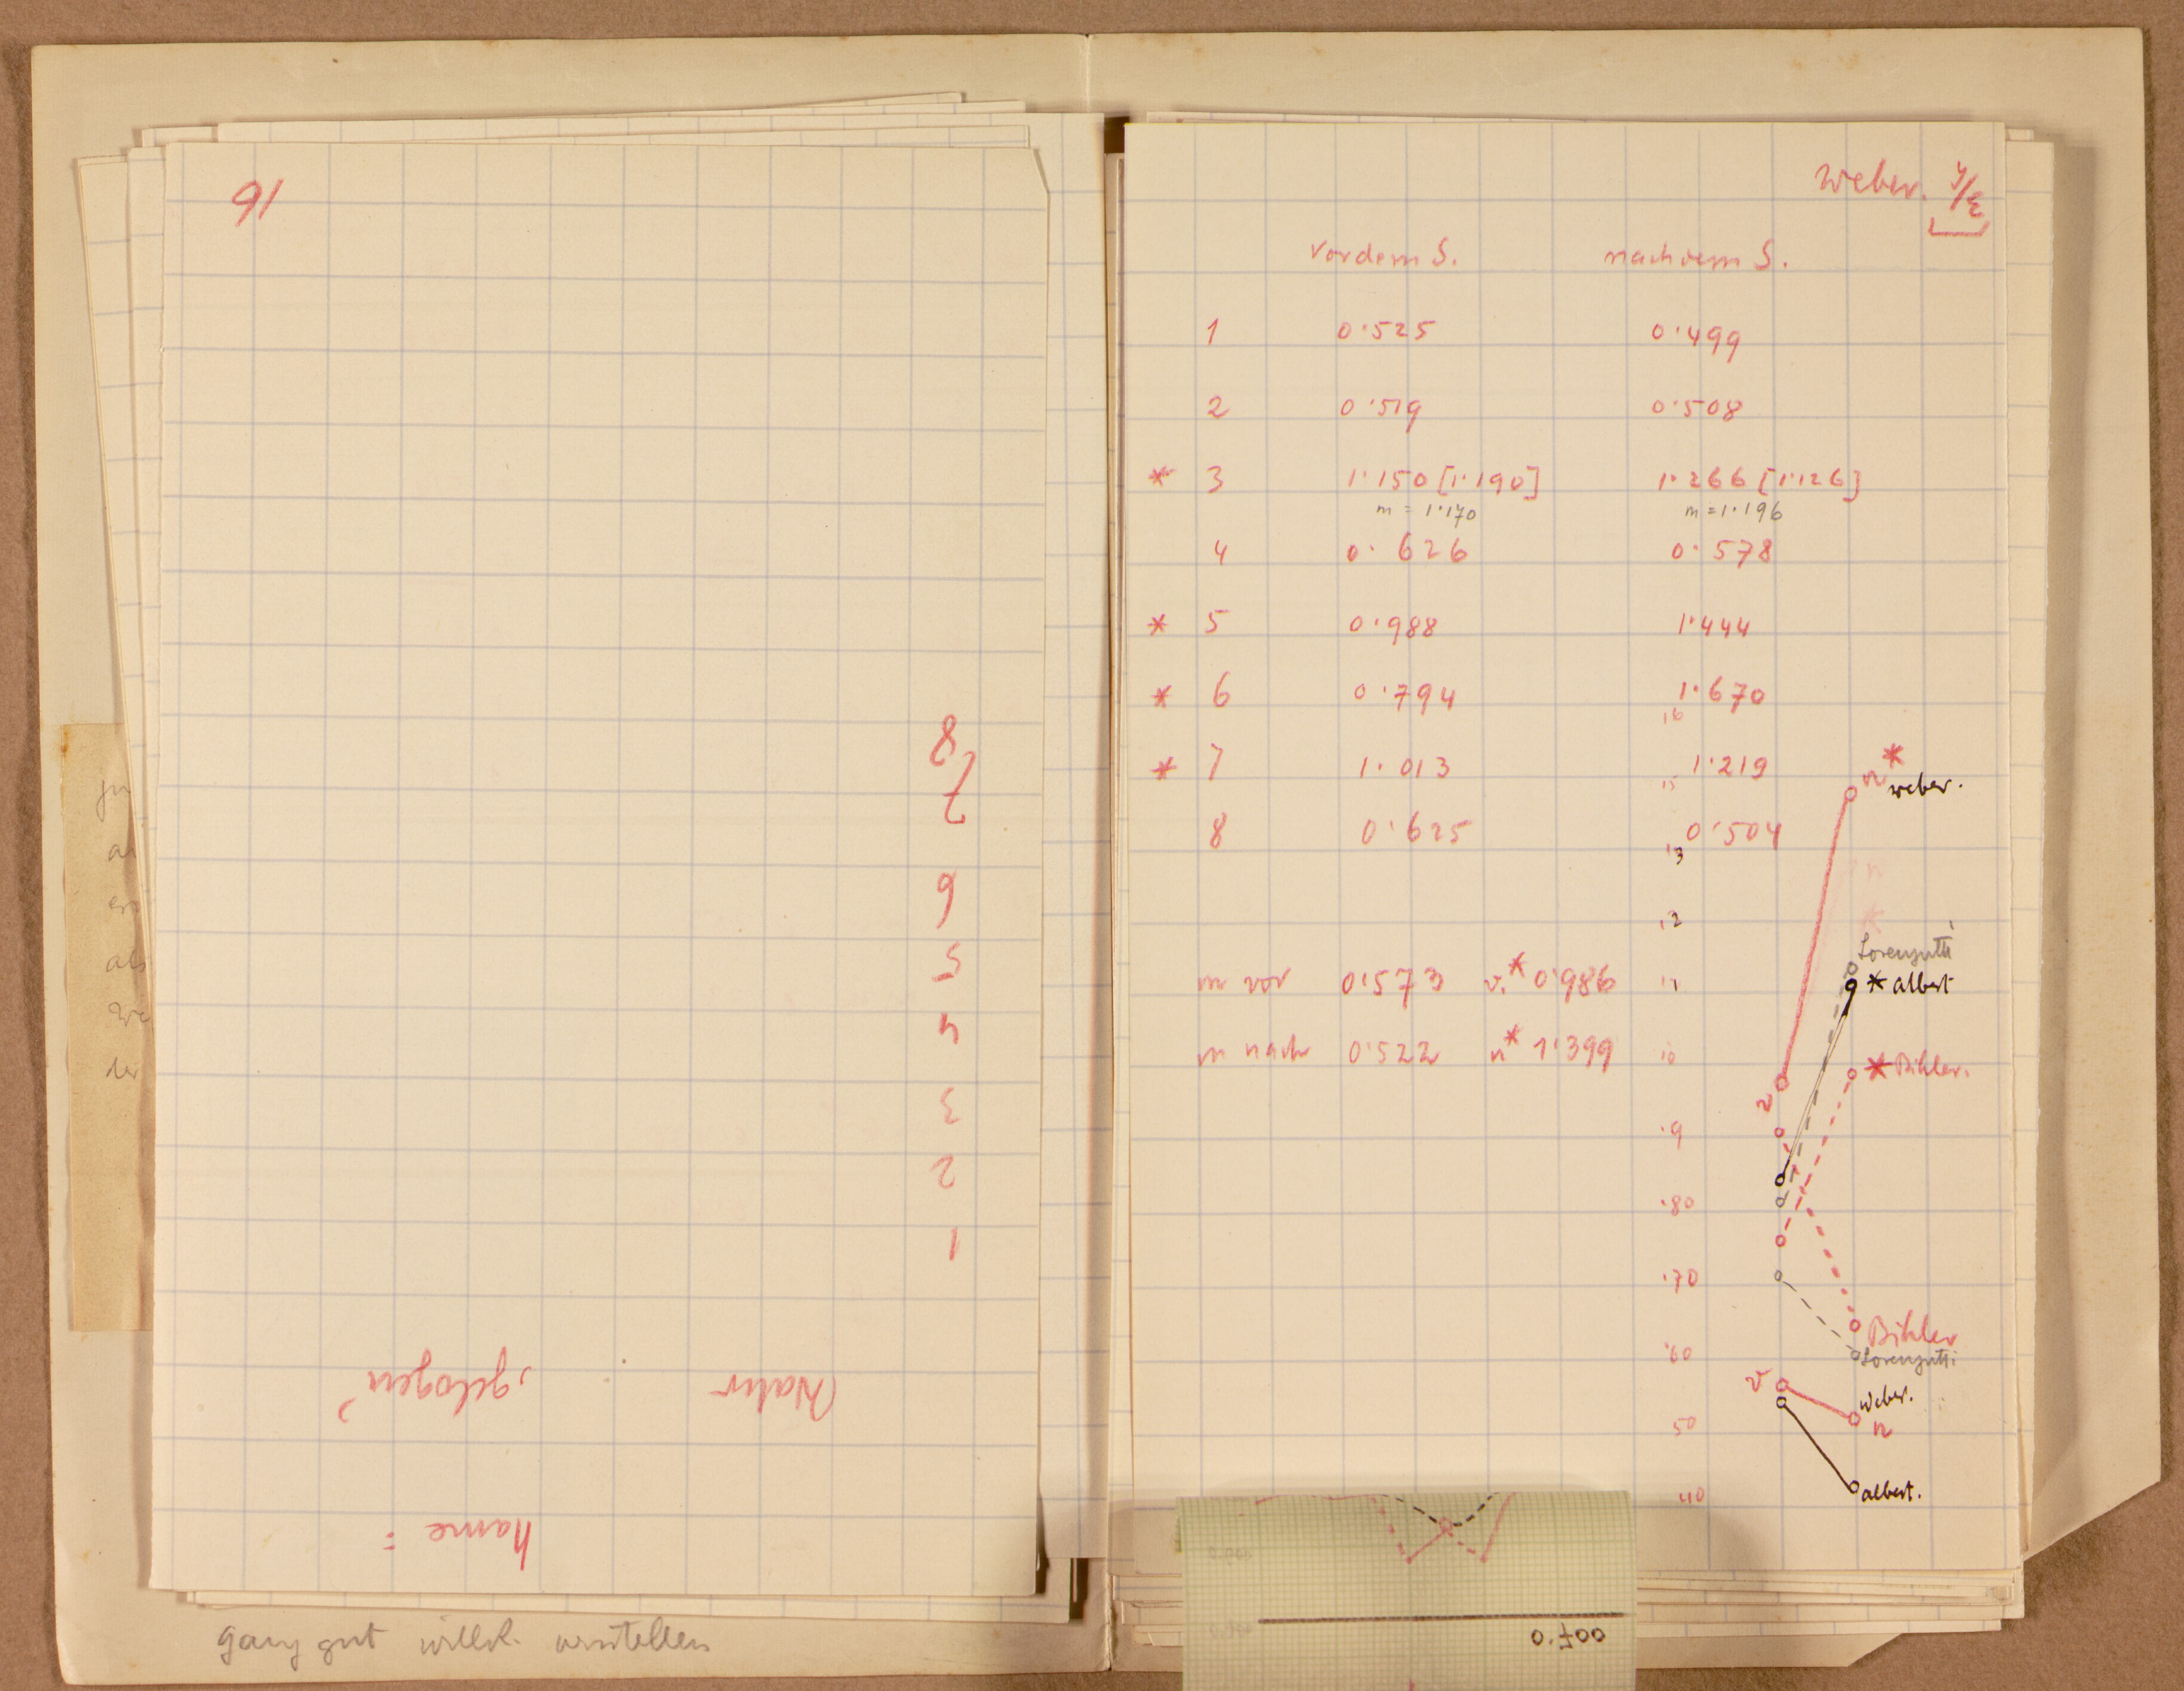 16
8
7
6
5
4
3
2
1
Wahr „gelogen"
Name :
ganz gut willk. verstellen
Weber. J/E
vor dem S. nach dem S.
1 0·525 0·499
2 0·519 0·508
* 3 1·150 [1·190] 1·266 [1·126]
m = 1·170 m = 1·196
4 0·626 0·578
* 5 0·988 1·444
* 6 0·794 1·670
* 7 1·013 1·219
8 0·625 0·504
m vor 0·573 v.* 0·986
m nach 0·522 n* 1·399
16
15
13
12
11
10
·9
·80
·70
·60
50
40
n* Weber.
Lorenzutti
* Albert
* Bihler.
v
Bihler
Lorenzutti
v
Weber.
n
Albert.
0·700
als